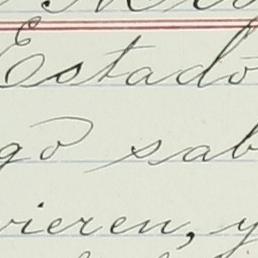 Estado
go sab
vieren, y